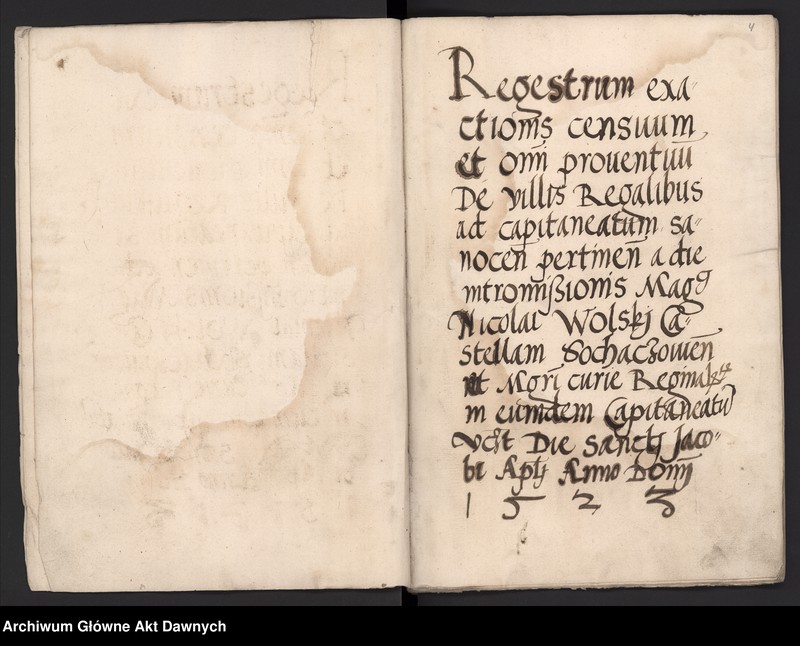 4
Regestrum exa-
ctionis censuum
et omni prouentuu
De villis Regalibus
ad capitaneatum sa-
nocen pertinen a die
intromißionis Mag
Nicolai Wolskj Ca-
stellani Sochaczowien
et Mgri curie Reginal
in eumdem Capitaneatu
vcht Die Sanctj Jaco-
bi Aplj Anno Domj
1 5 2 3
Archiwum Główne Akt Dawnych